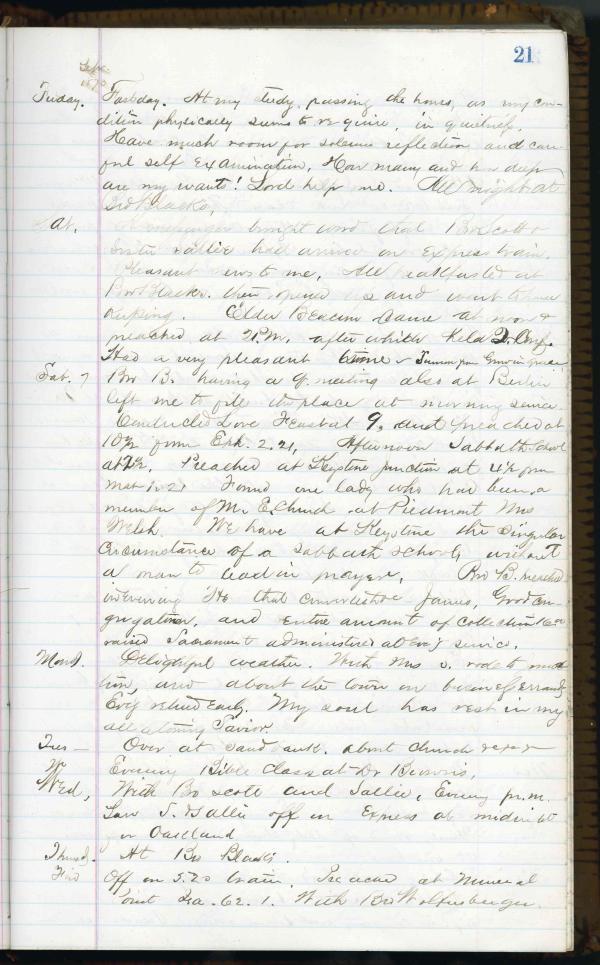 21
Sept.
Friday. Fastday. At my study, passing the hours, as my con-
dition physically seems to require, in quietness.
Have much room for solemn reflection and care
ful self Examination, How many and how deep
are my wants! Lord help me. All night at
Bro Blacks,
Sat. A messenger brought word that Bro Scott &
Sister Sallie had arrived on Express train.
Pleasant news to me, All breakfasted at
Bro Blacks. then opened up and went to house
keeping. Elder came at noon &
preached at 2 P.M. after which held Q. Conf.
Had a very pleasant time
Sab. 7 Bro B. having a Q. meeting also at Berlin
left me to fill the place at morning service
Conducted Love Feast at 9, and preached at
10½ from Eph. 2.21, Afternoon Sabbath School
at 2½. Preached at Keystone junction at 4½ pm
Mat Found one lady who had been a
member of M. E. Church at Piedmont Mrs
Welsh. We have at Keystone the singular
circumstance of a Sabbath School, without
a man to lead in prayer, Bro B. preached
in Evening He that converteth &c James, Good con-
gregations, and Entire amount of collection
raised Sacrament administered at Evg service.
Mond. Delightful weather. With Mrs S. rode to meet
him, and about the town on business errands
Evg retired Early. My soul has rest in my
all atoning Savior
Tues — Over at Sand bank. about church
Evening Bible Class at Dr
Wed, With Bro Scott and Sallie, Evening pr. m.
Saw S. & Sallie off in Express at midnight
for Oakland
Thursd. At Bro Blacks.
Frid Off on 5.20 train. Preached at Mineral
Point Isa. 62. 1. With Bro Wolfensberger.